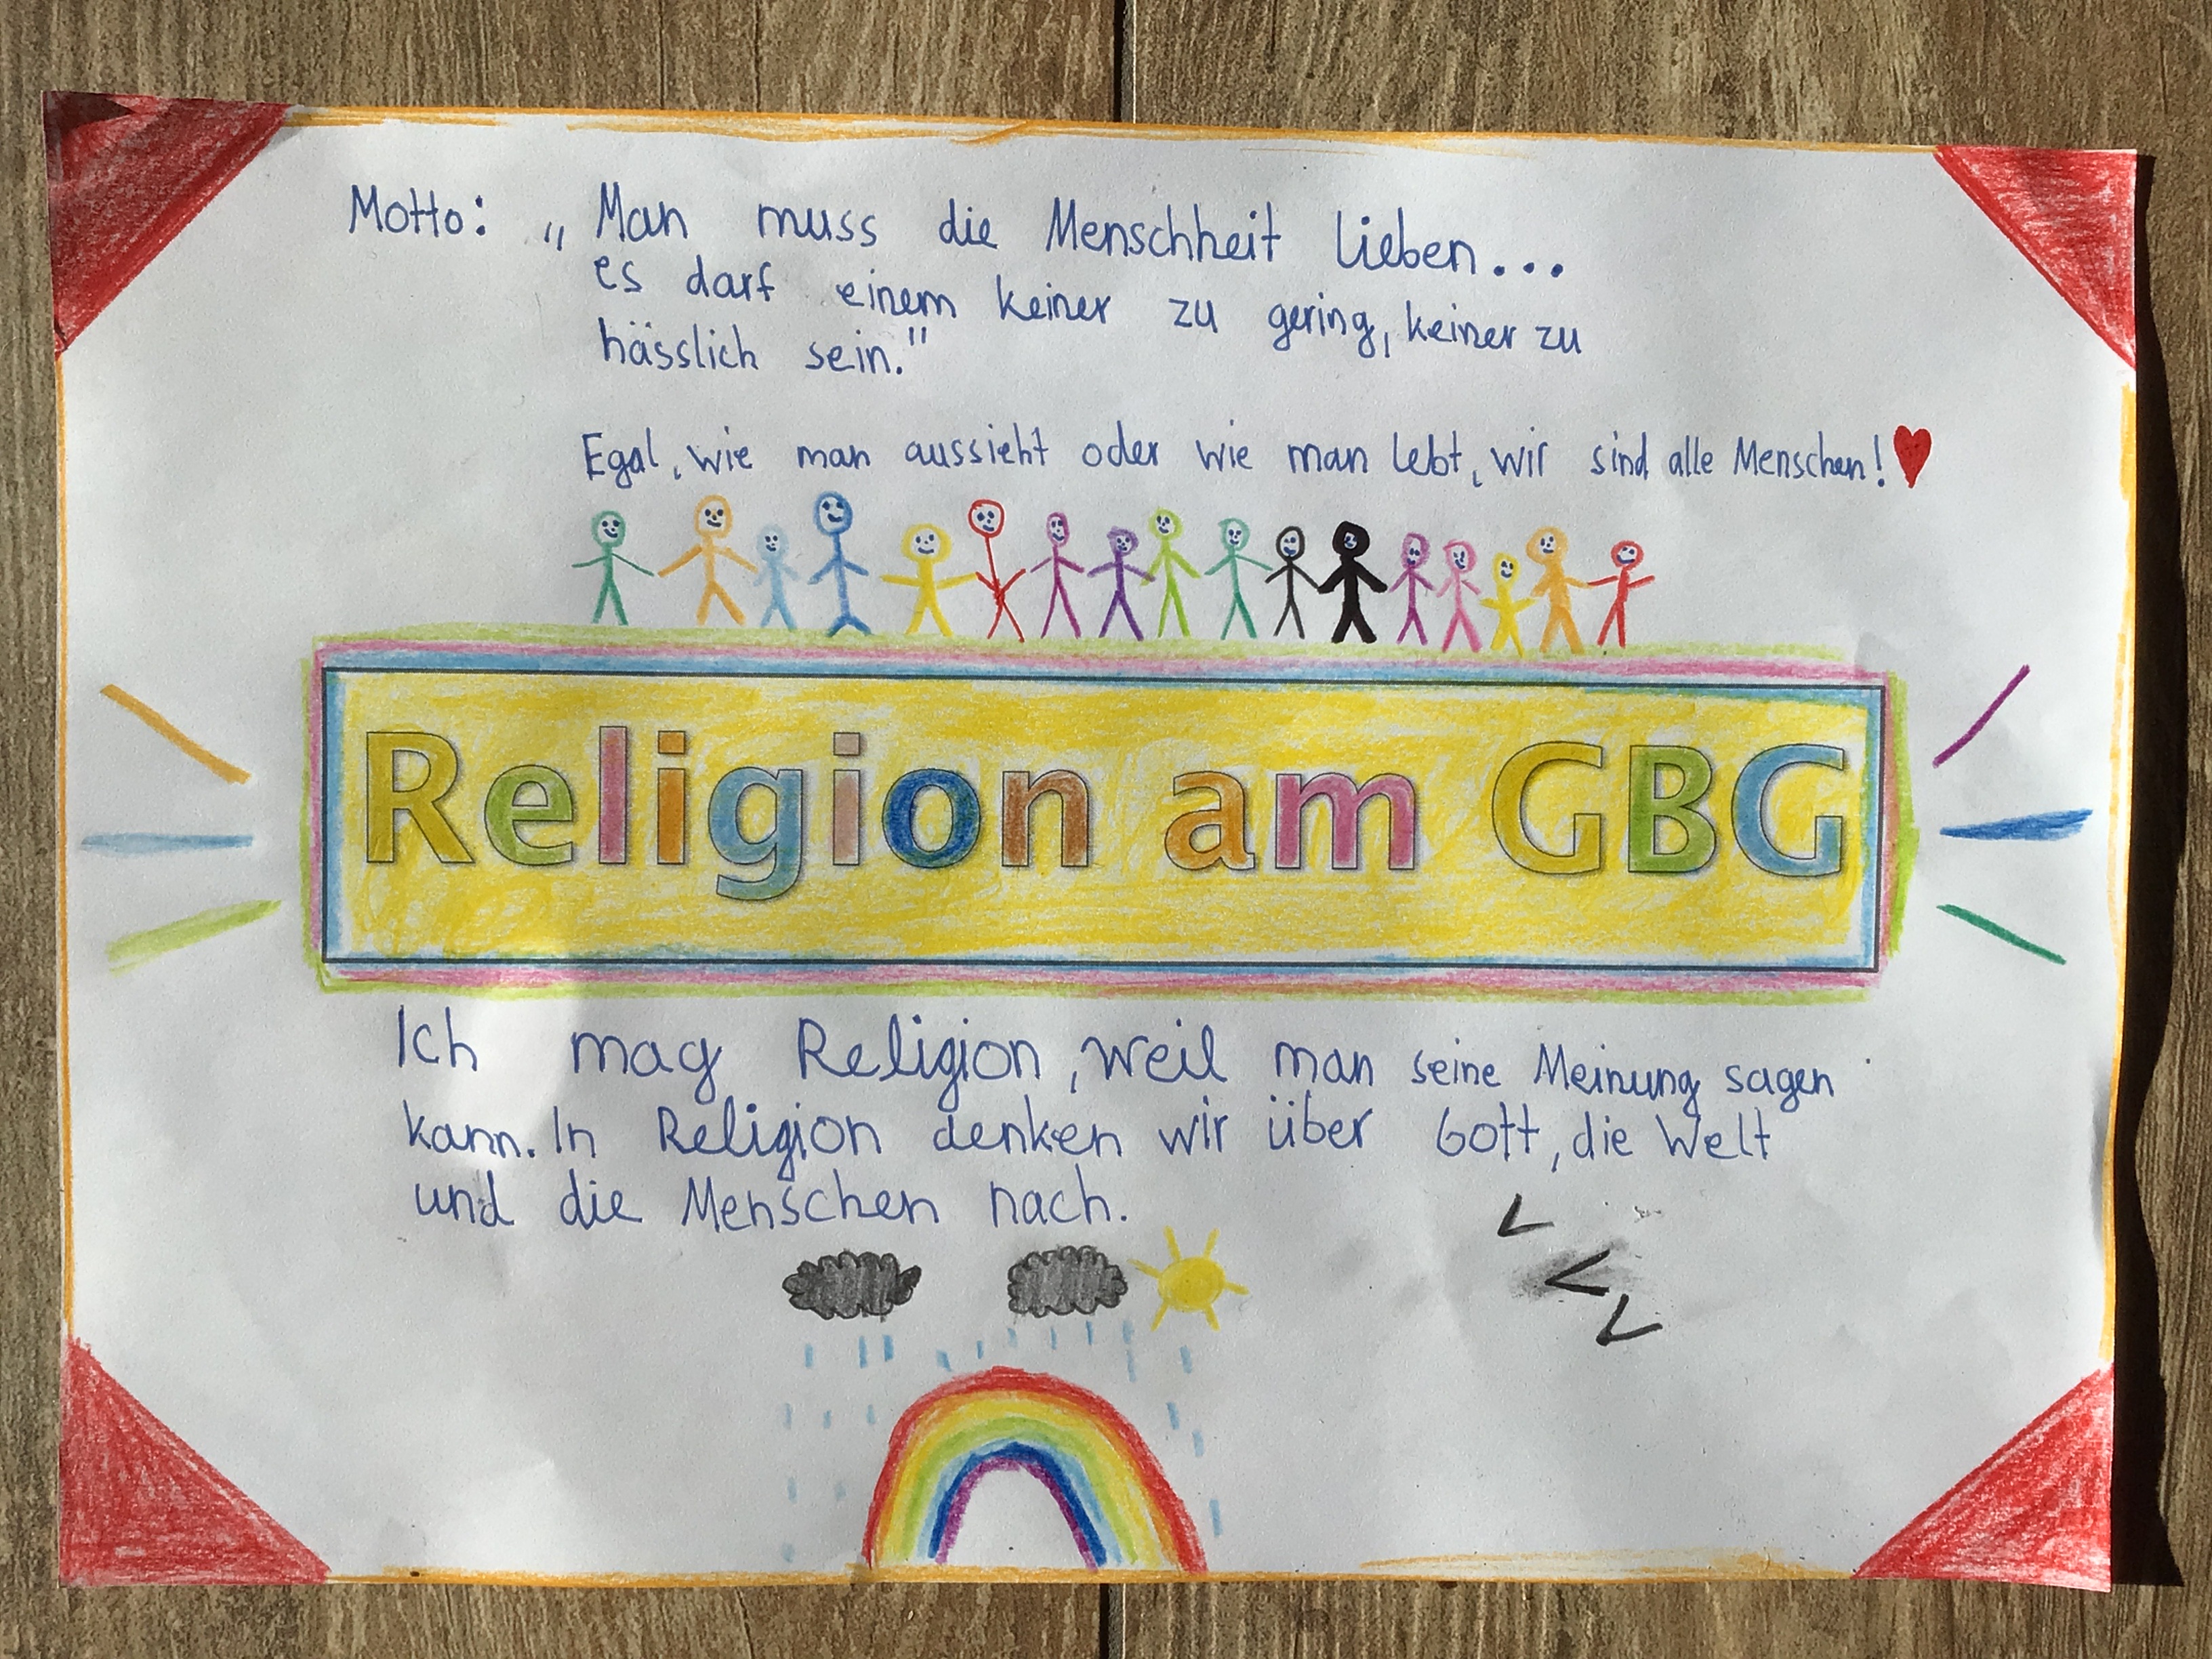 Motto: „Man muss die Menschheit lieben...
es darf einem keiner zu gering, keiner zu
hässlich sein."
Egal, wie man aussieht oder wie man lebt, wir sind alle Menschen!
Religion am GBG
Ich mag Religion, weil man seine Meinung sagen
kann. In Religion denken wir über Gott, die Welt
und die Menschen nach.